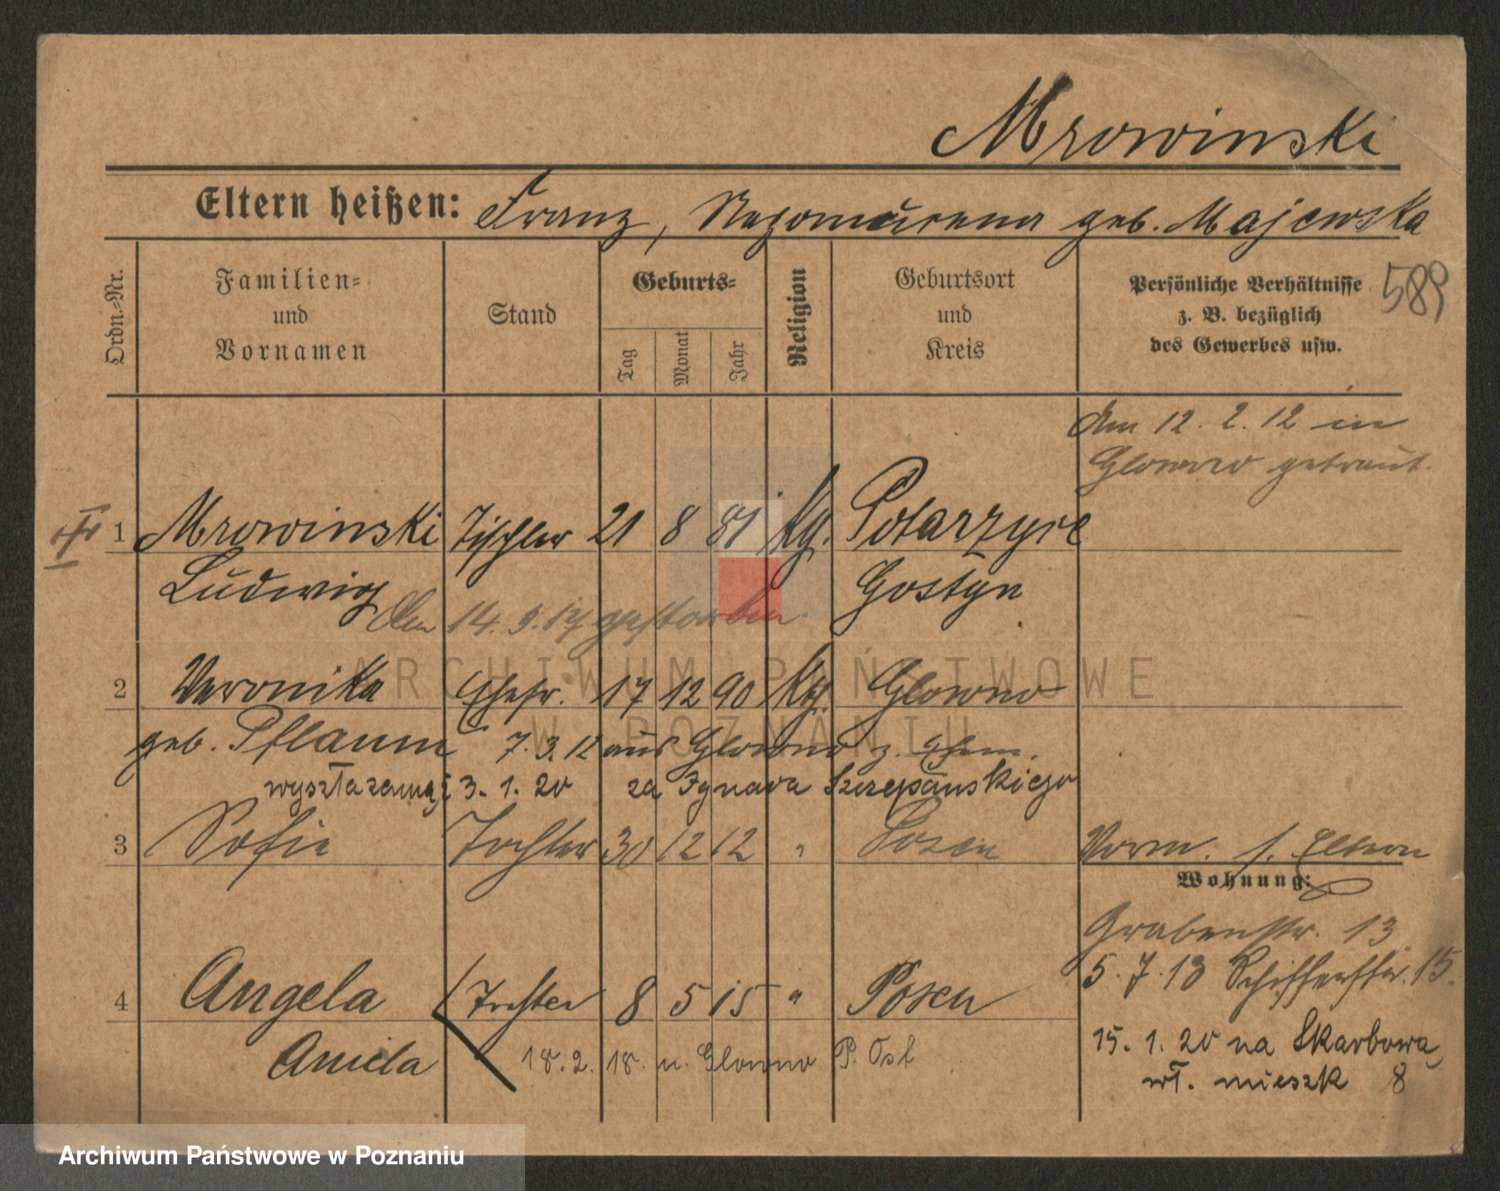 Mrowinski
Eltern heißen: Franz, Nepomucena geb. Majewska
Ordn.-Nr.
Familien-
und
Vornamen
Stand
Geburts-
Tag
Monat
Jahr
Religion
Geburtsort
und
Kreis
Persönliche Verhältnisse
z. B. bezüglich
des Gewerbes usw.
589
Am 12. 2. 12 in
Glowno getraut.
1 Mrowinski Tischler 21 8 81 kg. Potarzyce
Ludwig Gostyn
Am 14. 9. 17 gestorben
2 Veronika Ehefr. 17 12 90 kg. Glowno
geb. Pflaum 7. 3. 12 aus Glowno z. Ehem.
wyszła zamąż 3. 1. 20 za Ignaca Szczepańskiego
3 Sofie Tochter 30 12 12 " Posen
Vorm. s. Eltern
Wohnung:
Grabenstr. 13
5. 7. 13 Schifferstr. 15.
4 Angela Tochter 8 5 15 " Posen
Aniela 18. 2. 18. n. Glowno P. Ost
15. 1. 20 na Skarbowa
wł. mieszk 8
ARCHIWUM PAŃSTWOWE
W POZNANIU
Archiwum Państwowe w Poznaniu